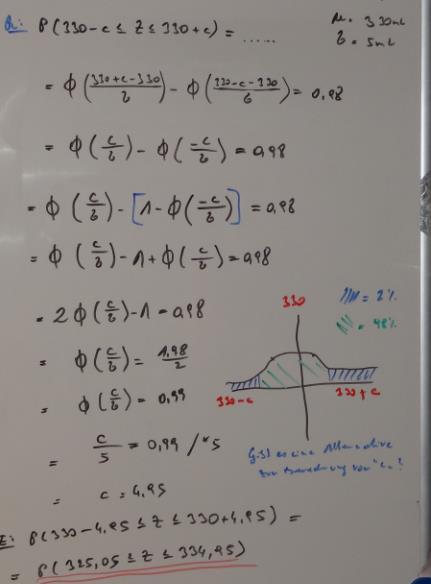 R: P(330-c ≤ Z ≤ 330+c) = ......
μ = 330ml
σ = 5ml
= Φ((330+c-330)/σ) - Φ((330-c-330)/σ) = 0,98
= Φ(c/σ) - Φ(-c/σ) = 0,98
= Φ(c/σ) - [1 - Φ(-c/σ)] = 0,98
= Φ(c/σ) - 1 + Φ(c/σ) = 0,98
= 2Φ(c/σ) - 1 = 0,98
= Φ(c/σ) = 1,98/2
= Φ(c/σ) = 0,99
= c/5 = 0,99 / *5
= c = 4,95
330
= 2%
= 98%
330-c
330+c
Gibt es eine Alternative
zur Berechnung von "c"?
E: P(330-4,95 ≤ Z ≤ 330+4,95) =
= P(325,05 ≤ Z ≤ 334,95)